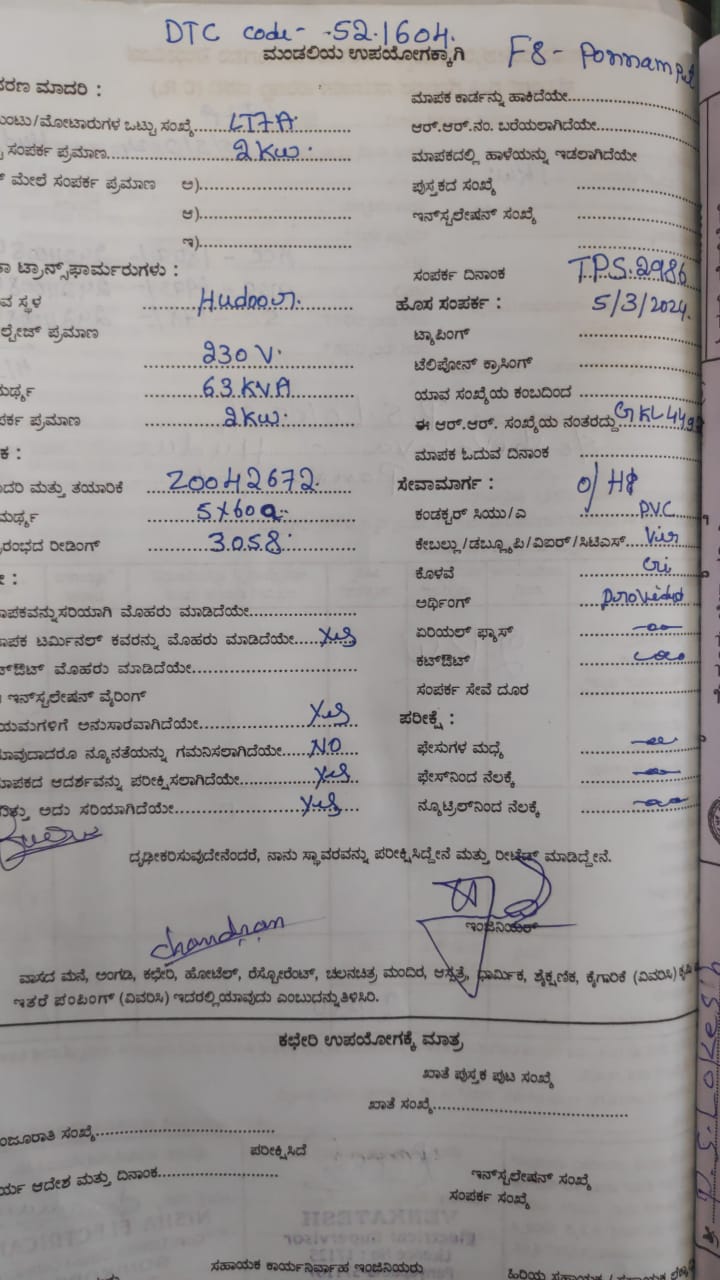 DTC code- -52.1604.
ಮಂಡಲಿಯ ಉಪಯೋಗಕ್ಕಾಗಿ F8- Ponnampet
ಮಾದರಿ :
ಮಾಪಕ ಕಾರ್ಡನ್ನು ಹಾಕಿದೆಯೇ
ಒಟ್ಟು ಸಂಖ್ಯೆ LT7A
ಆರ್.ಆರ್.ನಂ. ಬರೆಯಲಾಗಿದೆಯೇ
ಸಂಪರ್ಕ ಪ್ರಮಾಣ 2KW.
ಮಾಪಕದಲ್ಲಿ ಹಾಳೆಯನ್ನು ಇಡಲಾಗಿದೆಯೇ
ಮೇಲೆ ಸಂಪರ್ಕ ಪ್ರಮಾಣ ಅ)
ಪುಸ್ತಕದ ಸಂಖ್ಯೆ
ಆ)
ಇನ್‌ಸ್ಟಲೇಷನ್ ಸಂಖ್ಯೆ
ಇ)
ಟ್ರಾನ್ಸ್‌ಫಾರ್ಮರುಗಳು :
ಸಂಪರ್ಕ ದಿನಾಂಕ T.P.S.2986
ಸ್ಥಳ Hudoor.
ಹೊಸ ಸಂಪರ್ಕ : 5/3/2024.
ಪ್ರಮಾಣ
ಟ್ಯಾಪಿಂಗ್
230 V.
ಟೆಲಿಫೋನ್ ಕ್ರಾಸಿಂಗ್
63 KVA
ಯಾವ ಸಂಖ್ಯೆಯ ಕಂಬದಿಂದ
ಪ್ರಮಾಣ 2KW.
ಈ ಆರ್.ಆರ್. ಸಂಖ್ಯೆಯ ನಂತರದ್ದು
ಮಾಪಕ ಓದುವ ದಿನಾಂಕ
ಮತ್ತು ತಯಾರಿಕೆ Z0042672.
ಸೇವಾಮಾರ್ಗ : O/H
5x60a
ಕಂಡಕ್ಟರ್ ಸಿಯು/ಎ PVC
ರೀಡಿಂಗ್ 3.058.
ಕೇಬಲ್ಲು/ಡಬ್ಲ್ಯೂಪಿ/ವಿಐರ್/ಸಿಟಿಎಸ್ Vir
ಕೊಳವೆ Gi
ಅರ್ಥಿಂಗ್ provided
ಮೊಹರು ಮಾಡಿದೆಯೇ
ಟರ್ಮಿನಲ್ ಕವರನ್ನು ಮೊಹರು ಮಾಡಿದೆಯೇ Yes
ಏರಿಯಲ್ ಫ್ಯಾಸ್
ಮೊಹರು ಮಾಡಿದೆಯೇ
ಕಟ್‌ಔಟ್
ಇನ್‌ಸ್ಟಲೇಷನ್ ವೈರಿಂಗ್
ಸಂಪರ್ಕ ಸೇವೆ ದೂರ
ಅನುಸಾರವಾಗಿದೆಯೇ Yes
ಪರೀಕ್ಷೆ :
ನ್ಯೂನತೆಯನ್ನು ಗಮನಿಸಲಾಗಿದೆಯೇ NO
ಫೇಸುಗಳ ಮಧ್ಯೆ
ಆದರ್ಶವನ್ನು ಪರೀಕ್ಷಿಸಲಾಗಿದೆಯೇ Yes
ಫೇಸ್‌ನಿಂದ ನೆಲಕ್ಕೆ
ಅದು ಸರಿಯಾಗಿದೆಯೇ Yes
ನ್ಯೂಟ್ರಲ್‌ನಿಂದ ನೆಲಕ್ಕೆ
ದೃಢೀಕರಿಸುವುದೇನೆಂದರೆ, ನಾನು ಸ್ಥಾವರವನ್ನು ಪರೀಕ್ಷಿಸಿದ್ದೇನೆ ಮತ್ತು ರೀಟೆಡ್ ಮಾಡಿದ್ದೇನೆ.
chandran
ಇಂಜಿನಿಯರ್
ವಾಸದ ಮನೆ, ಅಂಗಡಿ, ಕಛೇರಿ, ಹೋಟೆಲ್, ರೆಸ್ಟೋರೆಂಟ್, ಚಲನಚಿತ್ರ ಮಂದಿರ, ಆಸ್ಪತ್ರೆ, ಧಾರ್ಮಿಕ, ಶೈಕ್ಷಣಿಕ, ಕೈಗಾರಿಕೆ (ವಿವರಿಸಿ)
ಇತರೆ ಪಂಪಿಂಗ್ (ವಿವರಿಸಿ) ಇದರಲ್ಲಿಯಾವುದು ಎಂಬುದನ್ನುತಿಳಿಸಿರಿ.
ಕಛೇರಿ ಉಪಯೋಗಕ್ಕೆ ಮಾತ್ರ
ಖಾತೆ ಪುಸ್ತಕ ಪುಟ ಸಂಖ್ಯೆ
ಖಾತೆ ಸಂಖ್ಯೆ
ಸಂಖ್ಯೆ
ಪರೀಕ್ಷಿಸಿದೆ
ಆದೇಶ ಮತ್ತು ದಿನಾಂಕ
ಇನ್‌ಸ್ಟಲೇಷನ್ ಸಂಖ್ಯೆ
ಸಂಪರ್ಕ ಸಂಖ್ಯೆ
ಸಹಾಯಕ ಕಾರ್ಯನಿರ್ವಾಹ ಇಂಜಿನಿಯರು
ಹಿರಿಯ ಸಹಾಯಕ